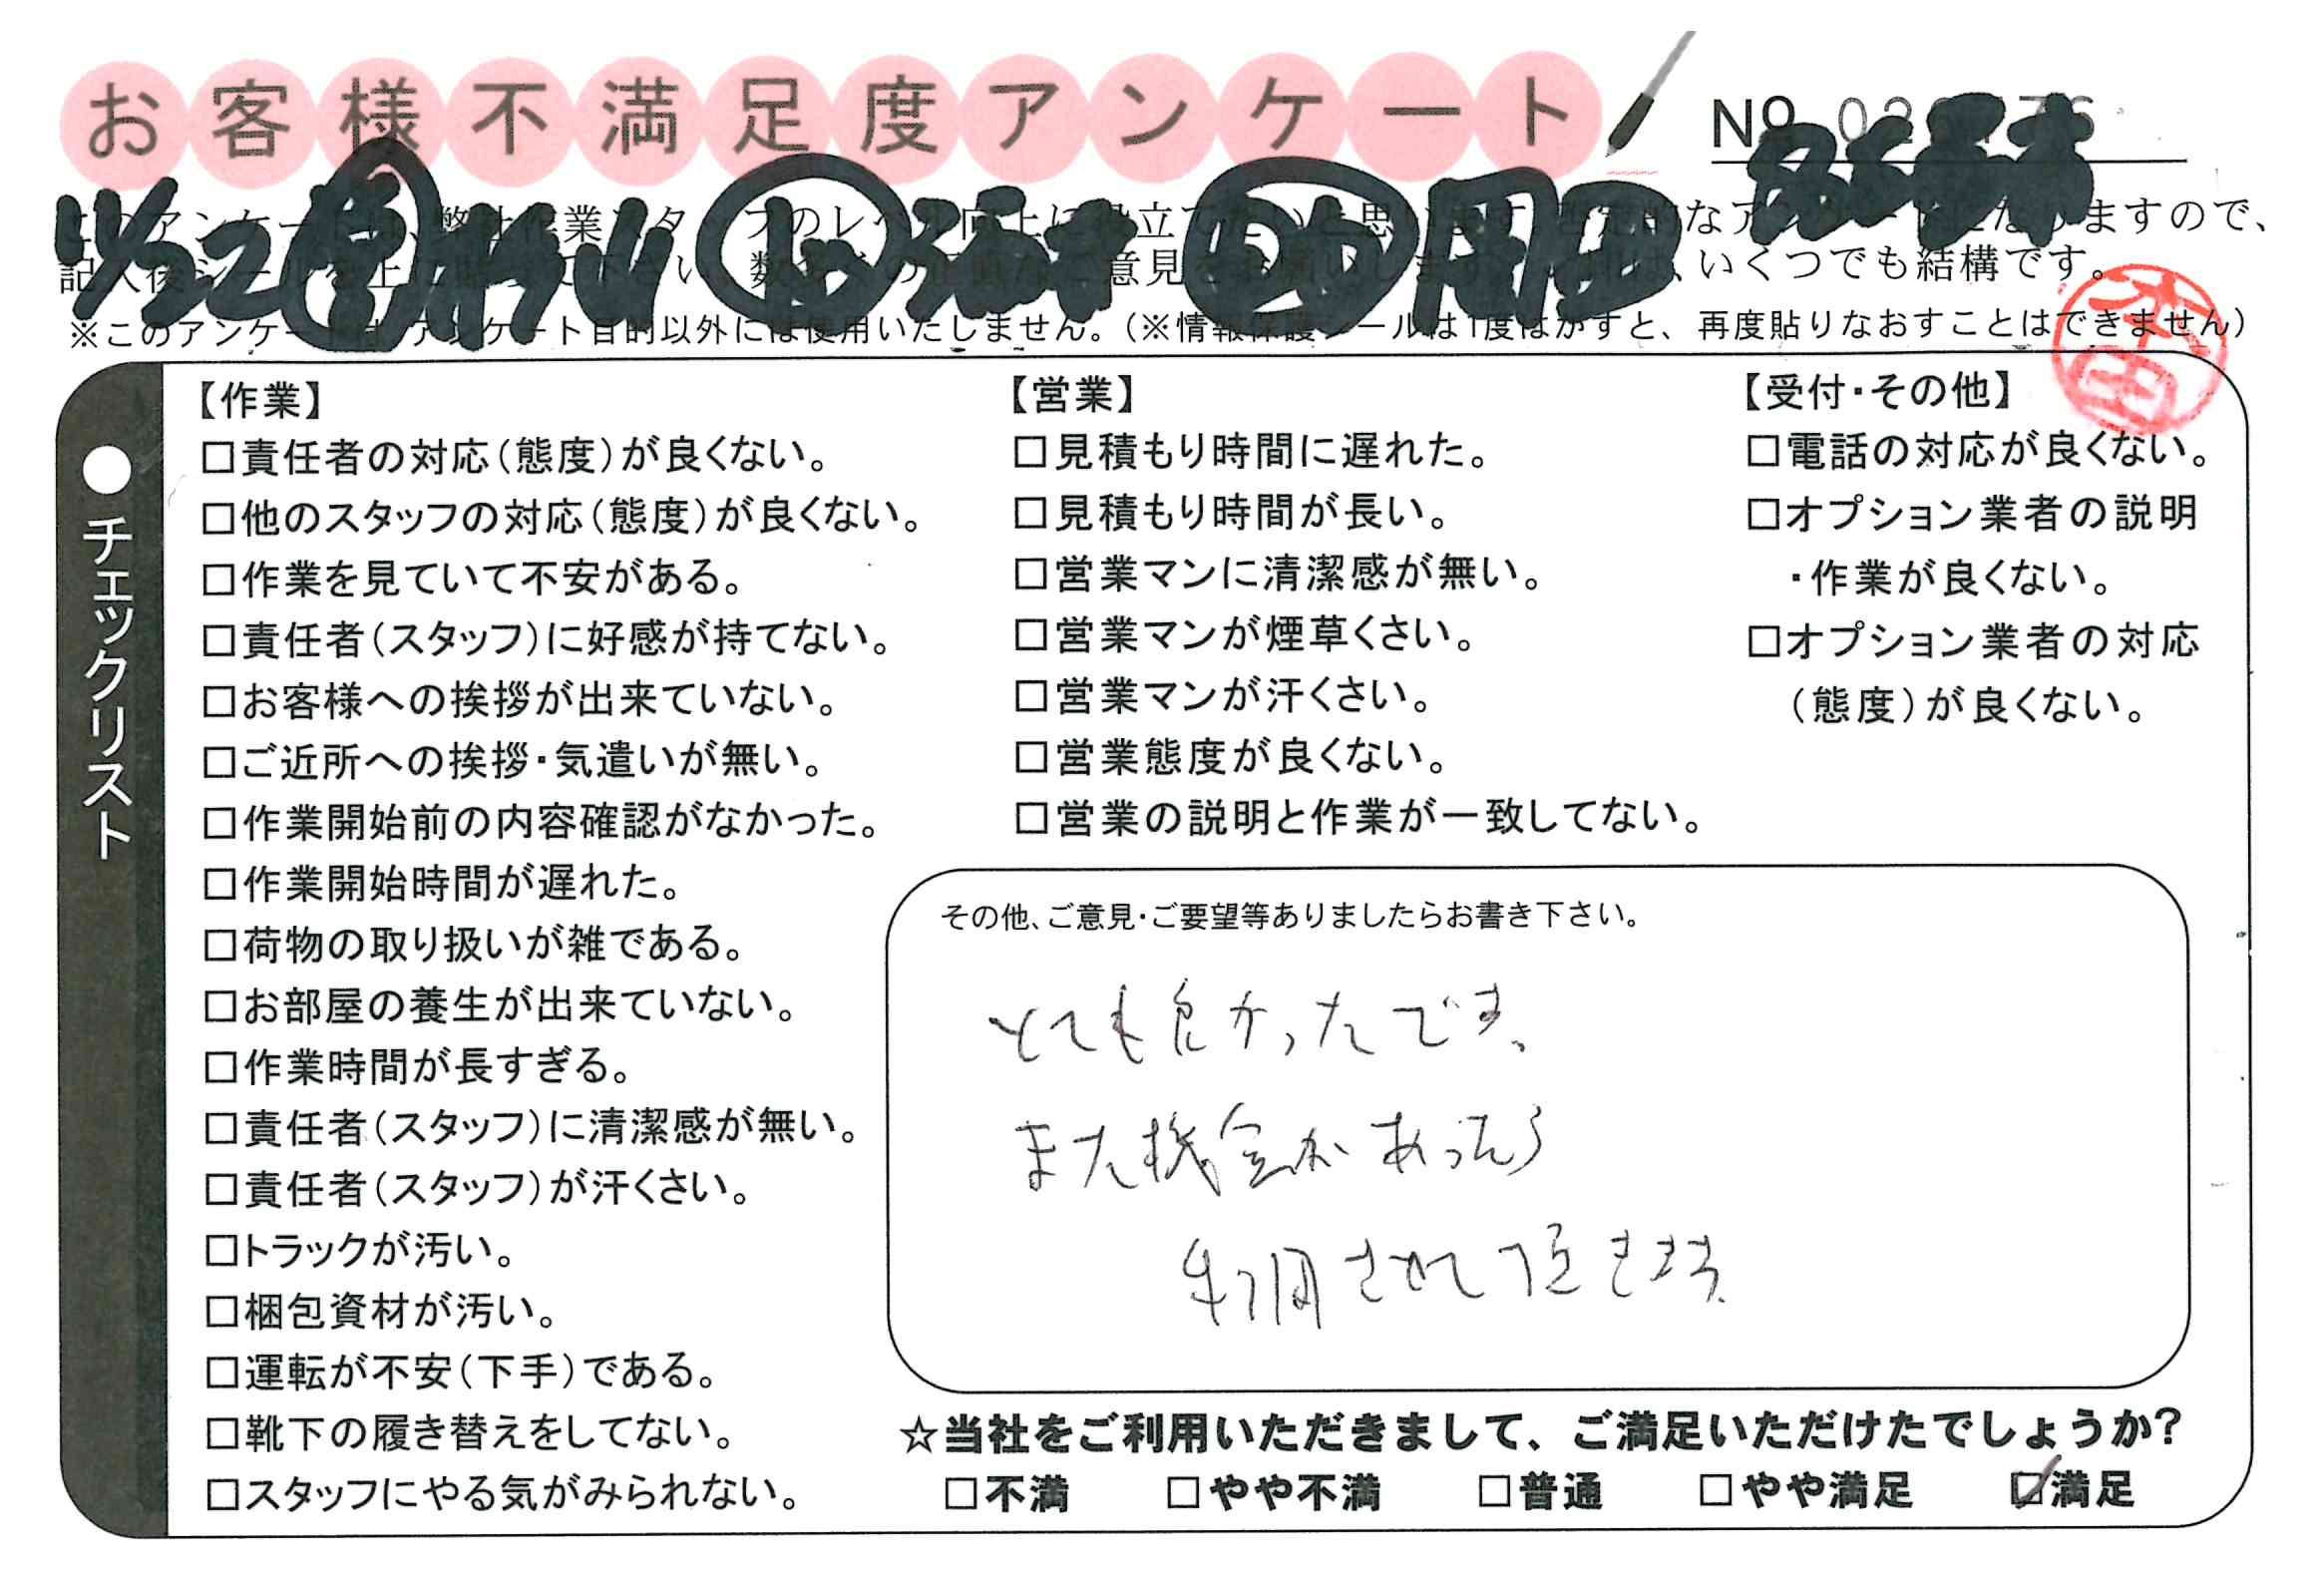 お客様不満足度アンケート
No
11/22
なアンケートになりますので、
いくつでも結構です。
※このアンケートは、アンケート目的以外には使用いたしません。(※情報保護シールは1度はがすと、再度貼りなおすことはできません)
●チェックリスト
【作業】
□責任者の対応(態度)が良くない。
□他のスタッフの対応(態度)が良くない。
□作業を見ていて不安がある。
□責任者(スタッフ)に好感が持てない。
□お客様への挨拶が出来ていない。
□ご近所への挨拶・気遣いが無い。
□作業開始前の内容確認がなかった。
□作業開始時間が遅れた。
□荷物の取り扱いが雑である。
□お部屋の養生が出来ていない。
□作業時間が長すぎる。
□責任者(スタッフ)に清潔感が無い。
□責任者(スタッフ)が汗くさい。
□トラックが汚い。
□梱包資材が汚い。
□運転が不安(下手)である。
□靴下の履き替えをしてない。
□スタッフにやる気がみられない。
【営業】
□見積もり時間に遅れた。
□見積もり時間が長い。
□営業マンに清潔感が無い。
□営業マンが煙草くさい。
□営業マンが汗くさい。
□営業態度が良くない。
□営業の説明と作業が一致してない。
【受付・その他】
□電話の対応が良くない。
□オプション業者の説明
・作業が良くない。
□オプション業者の対応
(態度)が良くない。
その他、ご意見・ご要望等ありましたらお書き下さい。
とても良かったです。
また機会があったら
利用させて頂きます。
☆当社をご利用いただきまして、ご満足いただけたでしょうか?
□不満 □やや不満 □普通 □やや満足 ☑満足